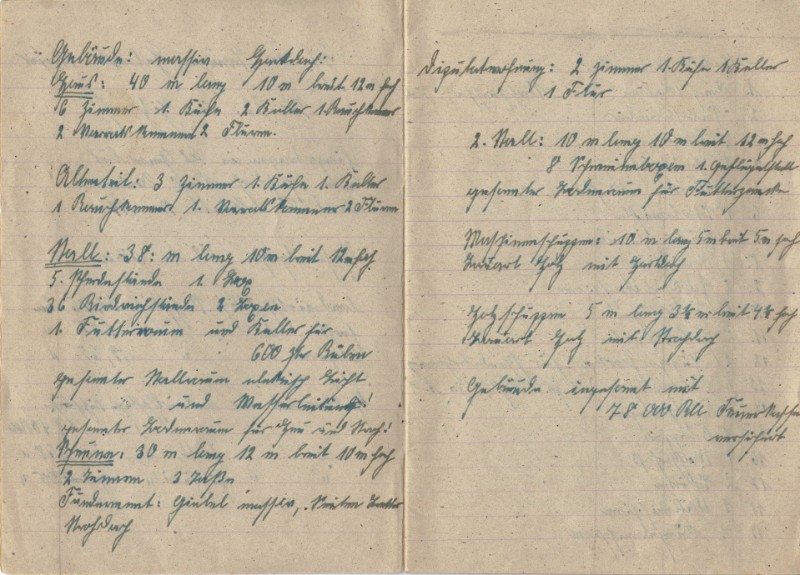 Gebäude: massiv Hartdach:
Haus: 40 m lang 10 m breit 12 m hoch
6 Zimmer 1. Küche 2 Keller 1. Rauchkammer
2 Vorratskammer 2 Fluren.
Altenteil: 3 Zimmer 1. Küche 1. Keller
1 Rauchkammer 1. Vorratskammer 2 Fluren
Stall: 38: m lang 10 m breit 12 m hoch
5. Pferdestände 1. Box
36 Rindviehstände 2 Boxen
1. Futterraum und Keller für
600 Ztr Rüben
gesamter Stallraum elektrisch Licht
und Wasserleitung!
gesamter Bodenraum für Heu und Stroh!
Scheune: 30 m lang 12 m breit 10 m hoch
2 Tennen 3
Fundament: Giebel massiv, Seiten Bretter
Strohdach
Deputatwohnung: 2 Zimmer 1. Küche 1 Keller
1 Flur
2. Stall: 10 m lang 10 m breit 12 m hoch
8 Schweineboxen 1. Geflügelstall
gesamter Bodenraum für Futterzwecke
Maschinenschuppen: 10 m lang 5 m breit 5 m hoch
Bauart Holz mit Hartdach
Holzschuppen 5 m lang breit hoch
Bauart Holz mit Strohdach
Gebäude ingesamt mit
78 000 RM Feuerkasse
versichert